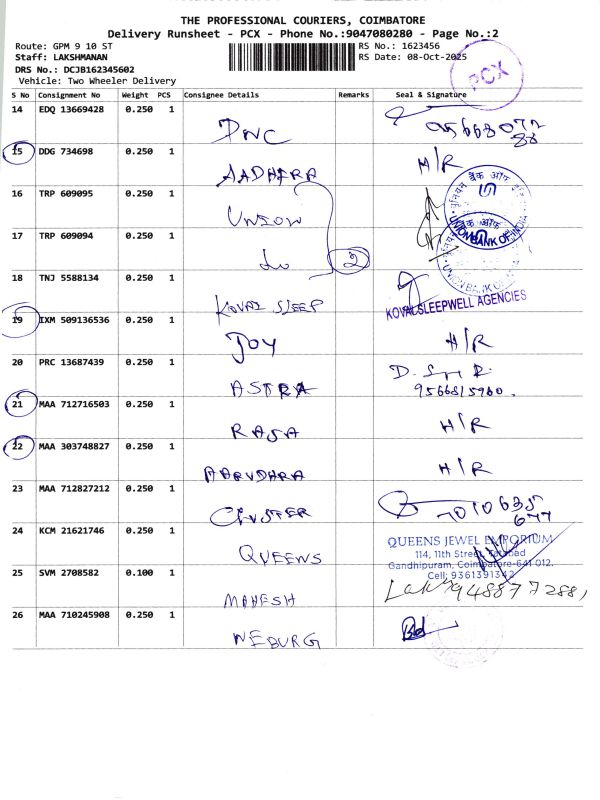 THE PROFESSIONAL COURIERS, COIMBATORE
Delivery Runsheet - PCX - Phone No.:9047080280 - Page No.:2
Route: GPM 9 10 ST RS No.: 1623456
Staff: LAKSHMANAN RS Date: 08-Oct-2025
DRS No.: DCJB162345602
Vehicle: Two Wheeler Delivery
PCX
S No Consignment No Weight PCS Consignee Details Remarks Seal & Signature
14 EDQ 13669428 0.250 1 DNC
15 DDG 734698 0.250 1 AADHIRA H/R
16 TRP 609095 0.250 1 UNION
यूनियन बैंक ऑफ
UNION BANK OF INDIA
17 TRP 609094 0.250 1 do 2
UNION BANK OF
18 TNJ 5588134 0.250 1 KOVAI SLEEP
KOVAI SLEEPWELL AGENCIES
19 IXM 509136536 0.250 1 JOY H/R
20 PRC 13687439 0.250 1 ASTRA
9566815960.
21 MAA 712716503 0.250 1 RAJA H/R
22 MAA 303748827 0.250 1 AARUDHRA H/R
23 MAA 712827212 0.250 1 CLUSTER 7010635
677
24 KCM 21621746 0.250 1 QUEENS
QUEENS JEWEL EMPORIUM
114, 11th Street,
Gandhipuram, Coimbatore-641 012.
Cell: 9361391342
25 SVM 2708582 0.100 1 MAHESH 9488772881
26 MAA 710245908 0.250 1 WEBURG